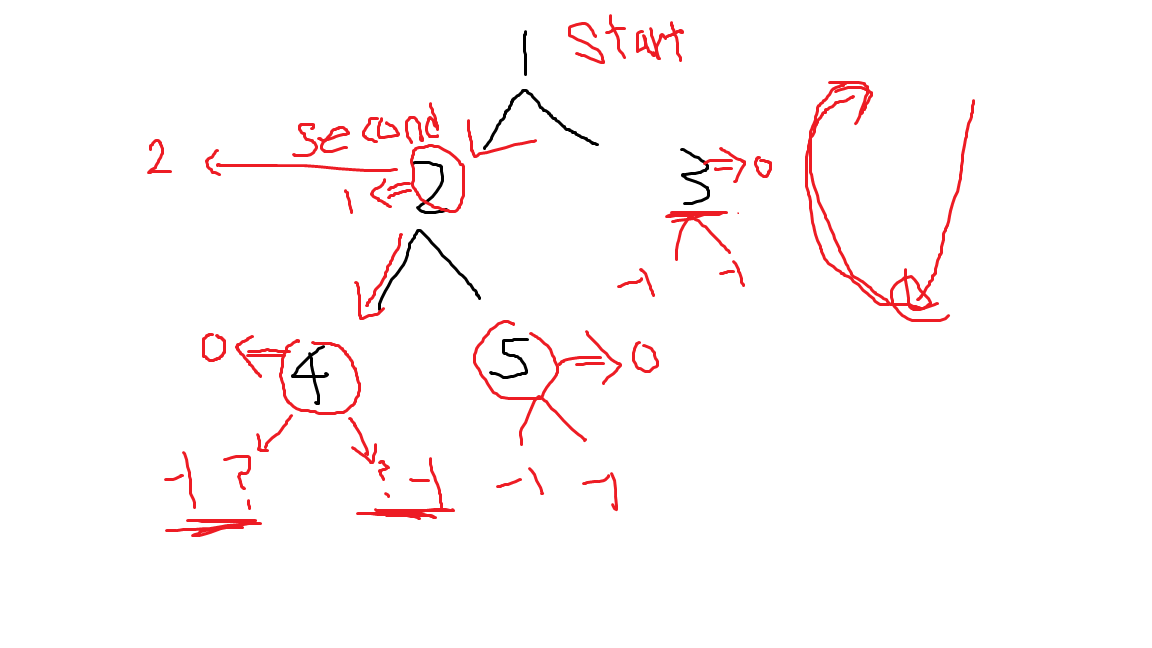 1 Start
second
2 2 3 0
1
-1 -1
0 4 5 0
-1 ? ? -1 -1 -1